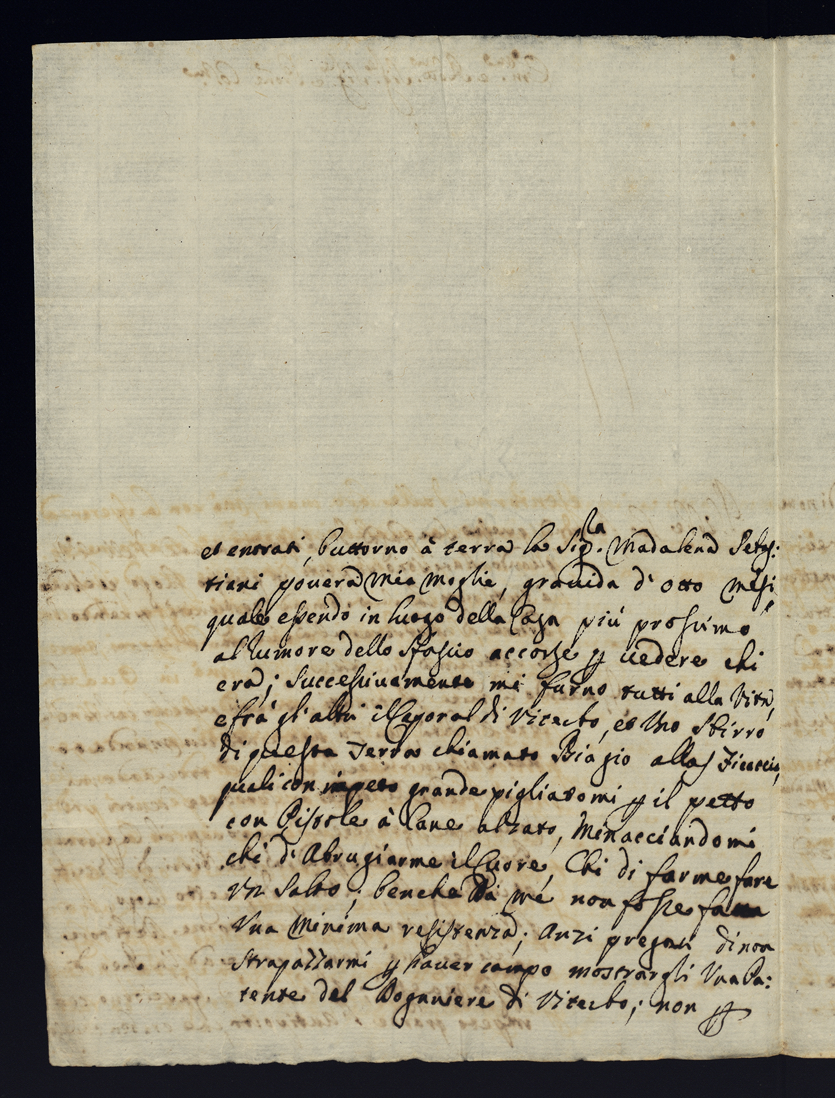 et entrati, buttorno à terra la Sig.ra Madalena Sebas:
tiani povera mia moglie, gravida d'otto mesi,
quale essendo in luogo della Casa più prossimo
al rumore dello sfascio accorse p vedere chi
era; successivamente mi furno tutti alla vita,
e frà gl'altri il Caporal di Viterbo, et Uno Sbirro
di questa Terra chiamato Biagio alla
quali con impeto grande pigliatomi p il petto
con Pistole à Cane alzato, minacciandomi
chi d'Abrugiarme il Cuore, Chi di farme fare
Un Salto; benche Da me non fosse fatta
Una Minima resistenza; Anzi pregati di non
strapazzarmi p haver campo mostrargli Una Pa:
tente del Doganiere di Viterbo; non p